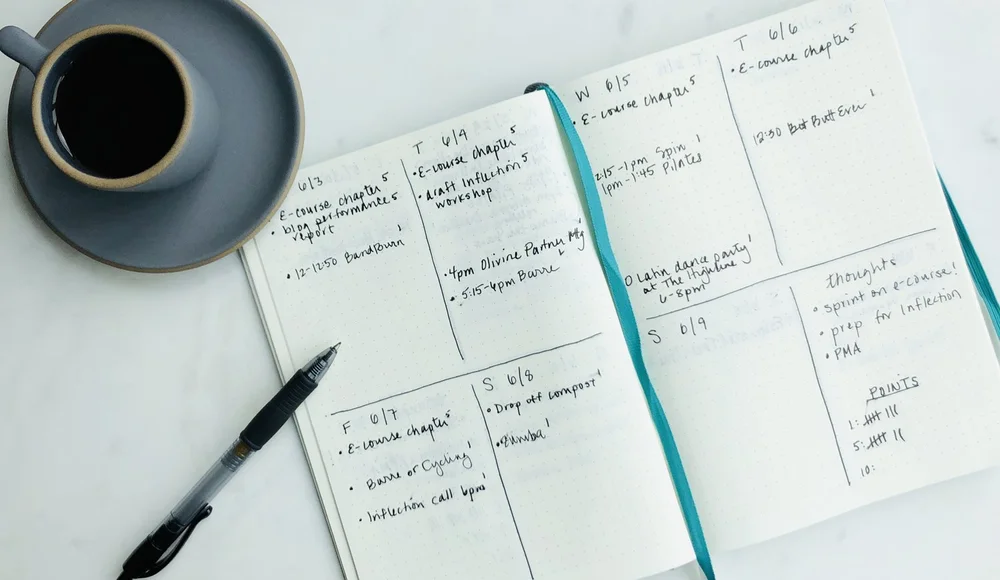 6/3
E-course chapter 5
• blog performance 5
report
• 12-12:50 BandBurn 1
T 6/4
• E-course chapter 5
• draft Inflection 5
workshop
• 4pm Olivine Partner Mtg 1
• 5:15-6pm Barre
F 6/7
• E-course chapter 5
• Barre or Cycling 1
• Inflection call 6pm 1
S 6/8
• Drop off compost 1
• Zumba 1
W 6/5
• E-course chapter 5
:15-1pm Spin 1
1pm-1:45 Pilates
Latin dance party 1
at The Highline
6-8pm
T 6/6
• E-course chapter 5
12:30 Butt Ever 1
S 6/9
thoughts
• sprint on e-course!
• prep for Inflection
• PMA
POINTS
1:
5:
10: